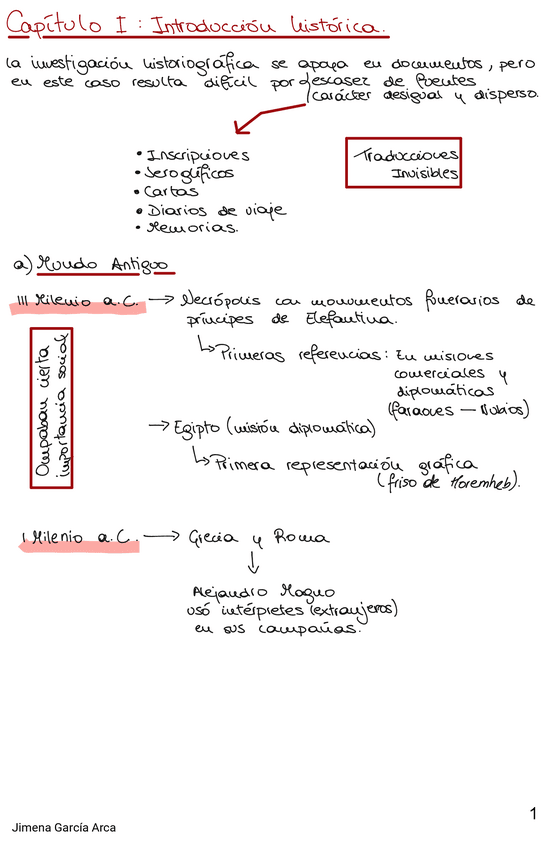 Capítulo I : Introducción histórica.
La investigación historiográfica se apoya en documentos, pero
en este caso resulta difícil por escasez de fuentes
carácter desigual y disperso.
• Inscripciones
• Jeroglíficos
• Cartas
• Diarios de viaje
• Memorias.
Traducciones
Invisibles
a) Mundo Antiguo
III Milenio a.C. → Necrópolis con monumentos funerarios de
príncipes de Elefantina.
↳ Primeras referencias: En misiones
comerciales y
diplomáticas
(faraones — Nubios)
Ocupaban cierta
importancia social
→ Egipto (misión diplomática)
↳ Primera representación gráfica
(friso de Horemheb).
I Milenio a.C. → Grecia y Roma
↓
Alejandro Magno
usó intérpretes (extranjeros)
en sus campañas.
Jimena García Arca
1